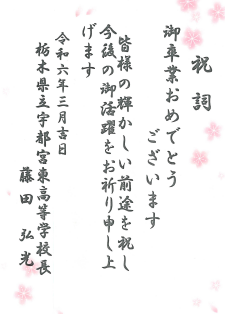 祝詞
御卒業おめでとう
ございます
皆様の輝かしい前途を祝し
今後の御活躍をお祈り申し上
げます
令和六年三月吉日
栃木県立宇都宮東高等学校長
藤田 弘光